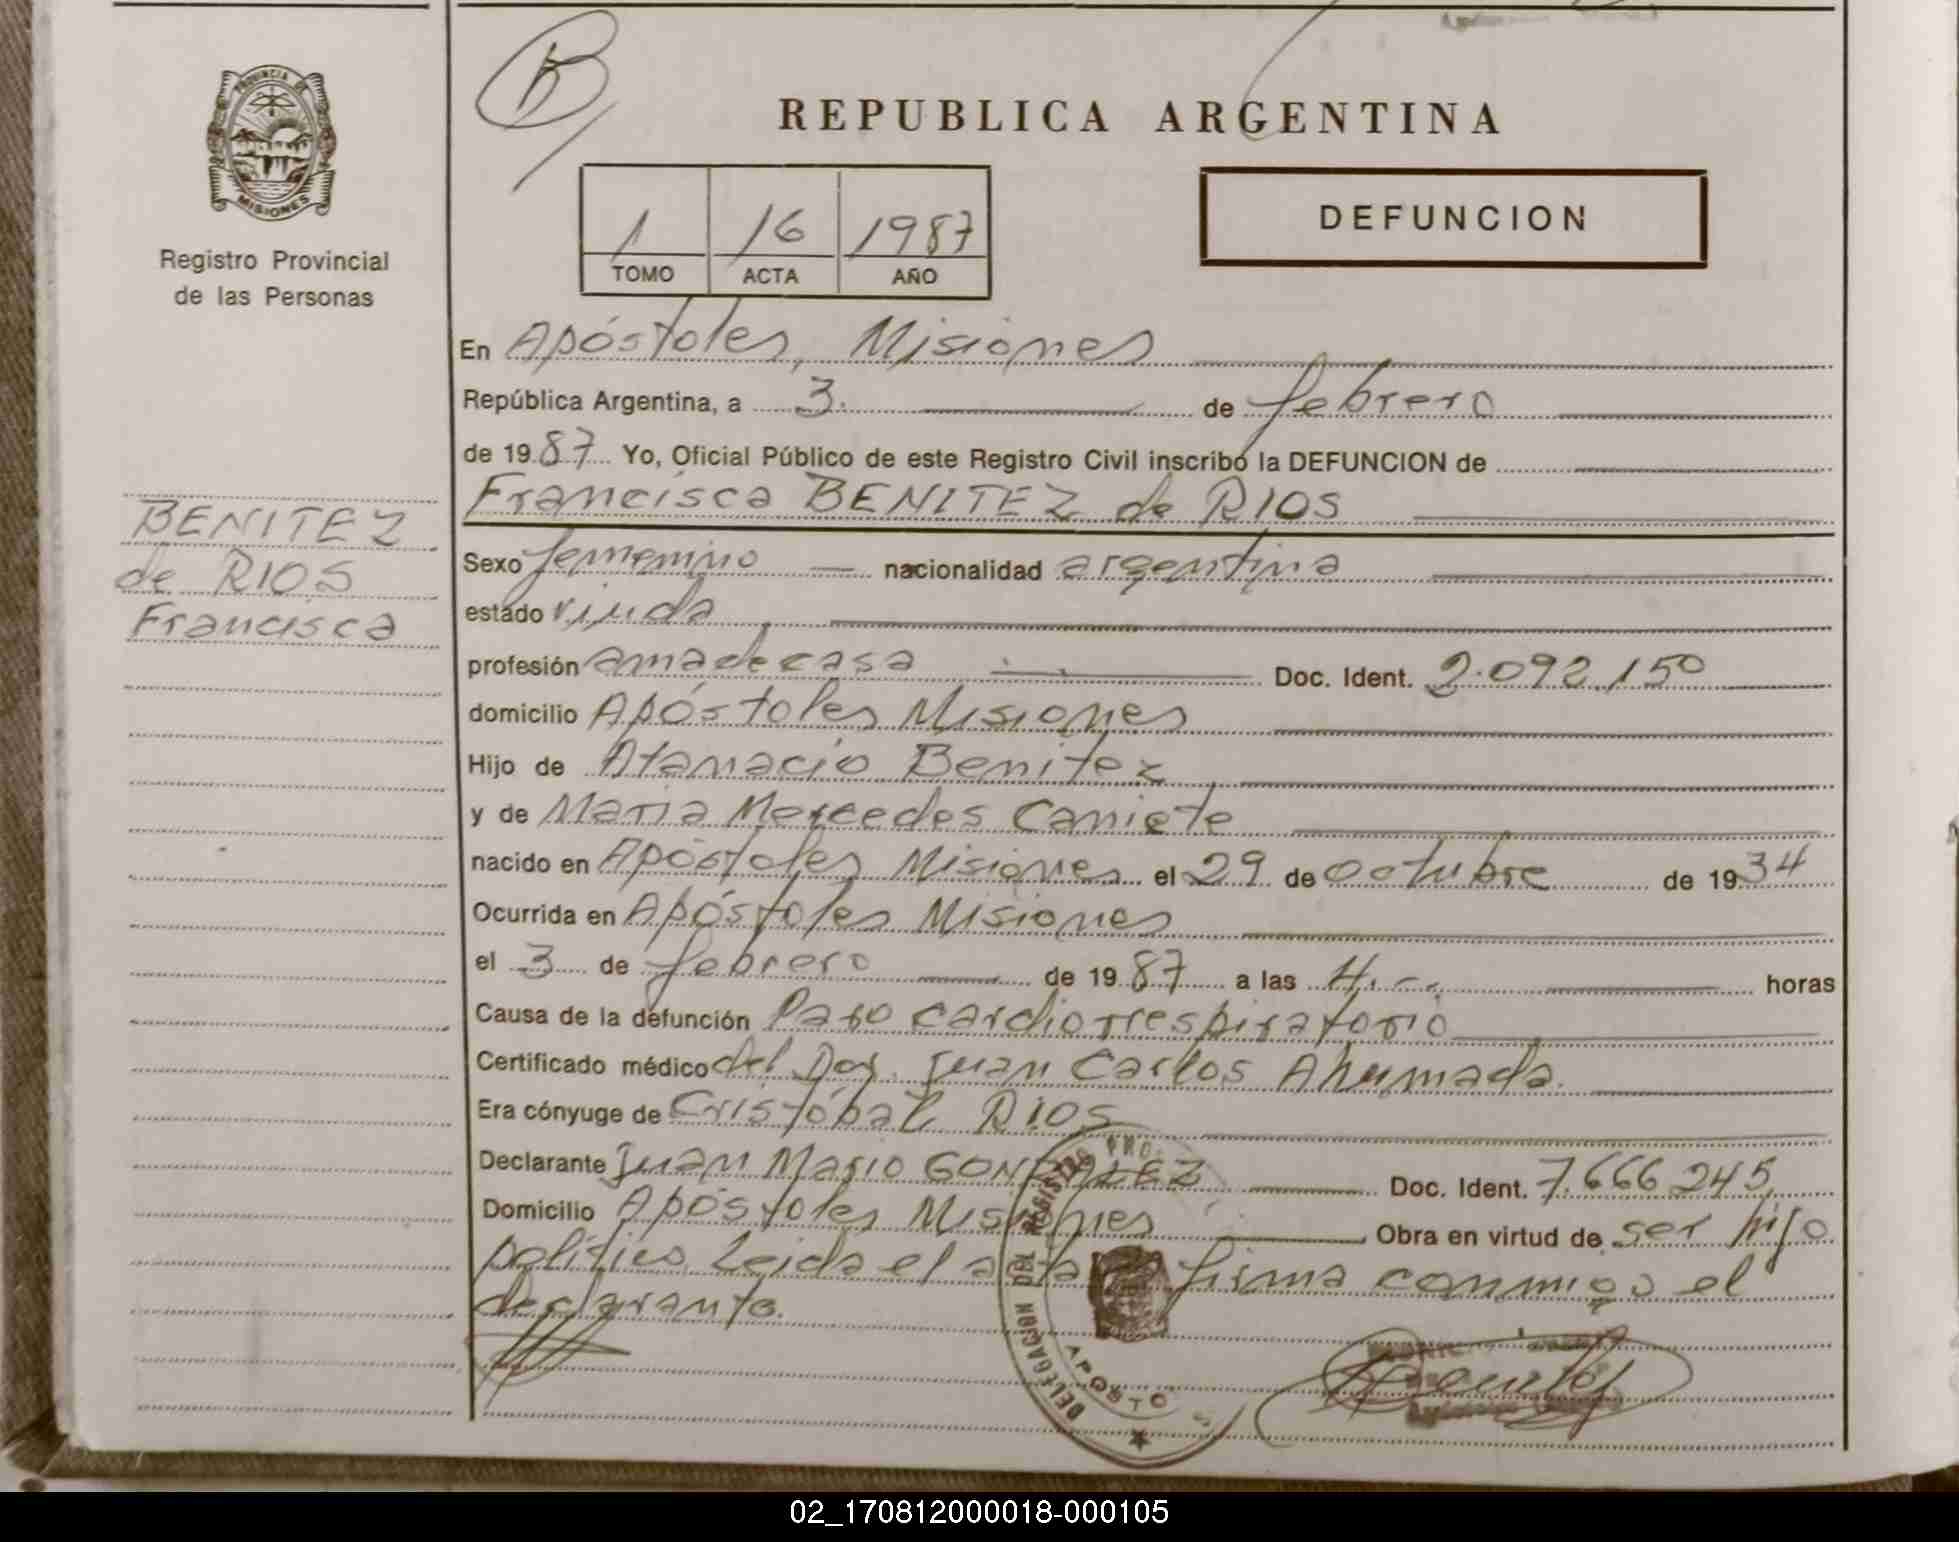 PROVINCIA DE
MISIONES
Registro Provincial
de las Personas
B
REPUBLICA ARGENTINA
1 16 1987
TOMO ACTA AÑO
DEFUNCION
En Apóstoles, Misiones
República Argentina, a 3. de febrero
de 1987 Yo, Oficial Público de este Registro Civil inscribo la DEFUNCION de
Francisca BENITEZ de RIOS
BENITEZ
de RIOS
Francisca
Sexo femenino nacionalidad argentina
estado viuda
profesión ama de casa Doc. Ident. 2.092.150
domicilio Apóstoles Misiones
Hijo de Atanacio Benitez
y de Maria Mercedes Caniete
nacido en Apóstoles Misiones el 29 de octubre de 1934
Ocurrida en Apóstoles Misiones
el 3 de febrero de 1987 a las 4.-. horas
Causa de la defunción Paro cardiorrespiratorio
Certificado médico del Dor. Juan Carlos Ahumada.
Era cónyuge de Cristóbal RIOS
Declarante Juan Mario GONZALEZ Doc. Ident. 7.666.245
Domicilio Apóstoles Misiones Obra en virtud de ser hijo
político. Leida el acta firma conmigo el
declarante.
DELEGACION DEL REGISTRO PRO.
APOSTO S
02_170812000018-000105